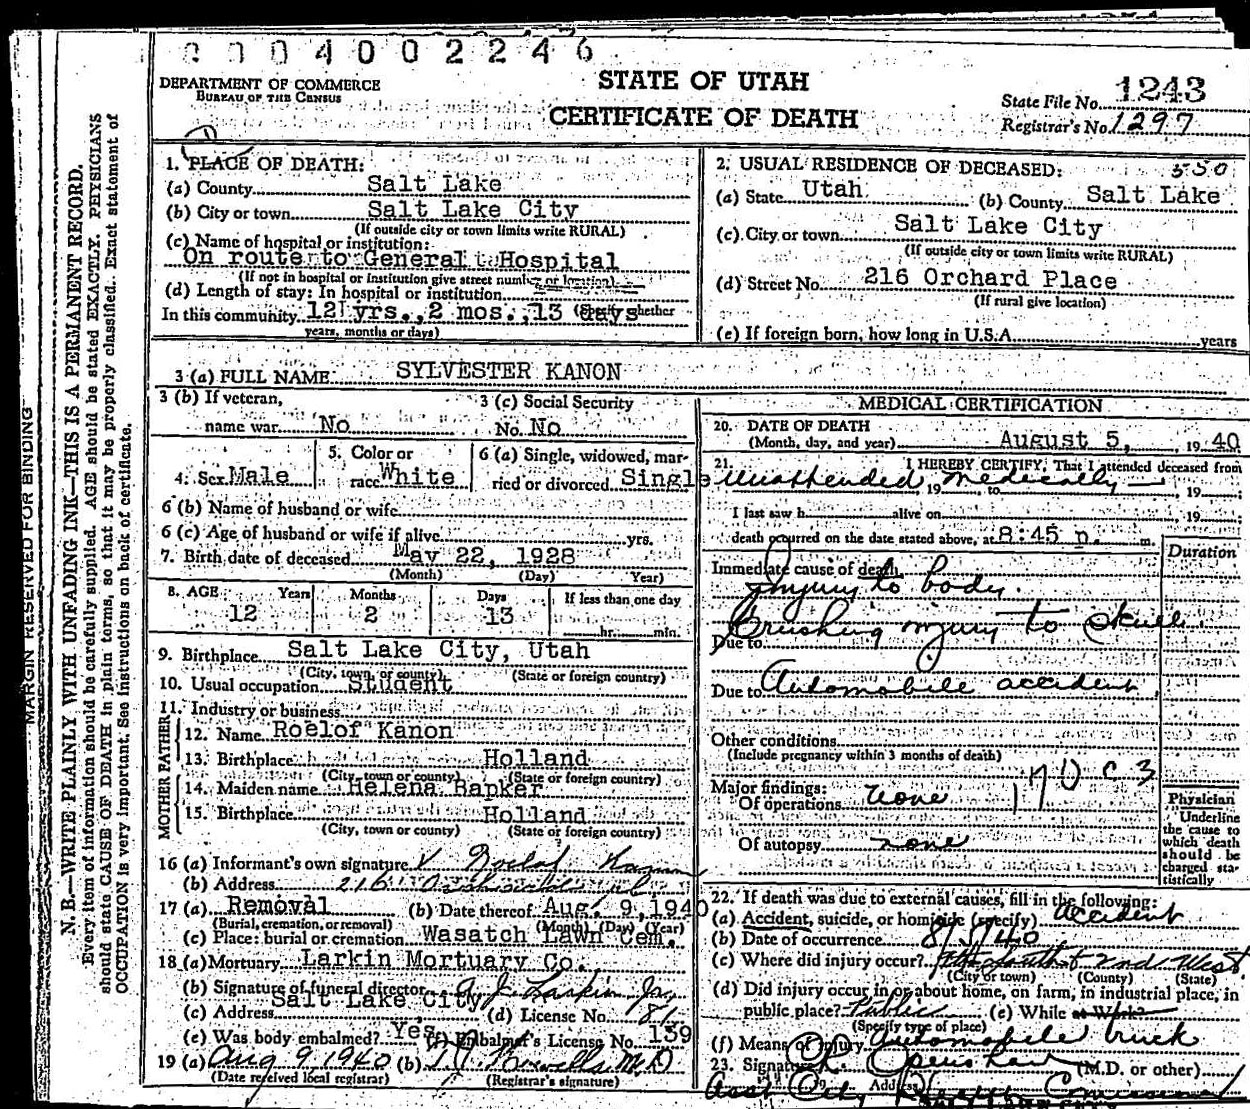 0004002246
DEPARTMENT OF COMMERCE
BUREAU OF THE CENSUS
STATE OF UTAH
CERTIFICATE OF DEATH
State File No. 1243
Registrar's No. 1297
MARGIN RESERVED FOR BINDING
N. B.—WRITE PLAINLY WITH UNFADING INK—THIS IS A PERMANENT RECORD.
Every item of information should be carefully supplied. AGE should be stated EXACTLY. PHYSICIANS
should state CAUSE OF DEATH in plain terms, so that it may be properly classified. Exact statement of
OCCUPATION is very important. See instructions on back of certificate.
1. PLACE OF DEATH:
(a) County Salt Lake
(b) City or town Salt Lake City
(If outside city or town limits write RURAL)
(c) Name of hospital or institution:
On route to General Hospital
(If not in hospital or institution give street number or location)
(d) Length of stay: In hospital or institution
In this community 12 yrs., 2 mos., 13 days (Specify whether
years, months or days)
2. USUAL RESIDENCE OF DECEASED: 550
(a) State Utah (b) County Salt Lake
(c) City or town Salt Lake City
(If outside city or town limits write RURAL)
(d) Street No. 216 Orchard Place
(If rural give location)
(e) If foreign born, how long in U.S.A. years
3 (a) FULL NAME SYLVESTER KANON
3 (b) If veteran,
name war No
3 (c) Social Security
No. No
4. Sex Male
5. Color or
race White
6 (a) Single, widowed, mar-
ried or divorced Single
6 (b) Name of husband or wife
6 (c) Age of husband or wife if alive yrs.
7. Birth date of deceased May 22, 1928
(Month) (Day) Year)
8. AGE Years Months Days If less than one day
12 2 13 hr. min.
9. Birthplace Salt Lake City, Utah
(City, town, or county) (State or foreign country)
10. Usual occupation Student
11. Industry or business
FATHER
12. Name Roelof Kanon
13. Birthplace Holland
(City, town or county) (State or foreign country)
MOTHER
14. Maiden name Helena Rapker
15. Birthplace Holland
(City, town or county) (State or foreign country)
16 (a) Informant's own signature Roelof Kanon
(b) Address 216
17 (a) Removal (b) Date thereof Aug. 9, 1940
(Burial, cremation, or removal) (Month) (Day) (Year)
(c) Place: burial or cremation Wasatch Lawn Cem.
18 (a) Mortuary Larkin Mortuary Co.
(b) Signature of funeral director A. J. Larkin Jr.
(c) Address Salt Lake City (d) License No. 181
(e) Was body embalmed? Yes (f) Embalmer's License No. 139
19 (a) Aug 9 1940 (b) M.D.
(Date received local registrar) (Registrar's signature)
MEDICAL CERTIFICATION
20. DATE OF DEATH
(Month, day, and year) August 5, 1940
21. I HEREBY CERTIFY, That I attended deceased from
Unattended, 19 Medically to , 19 ;
I last saw h alive on , 19 ;
death occurred on the date stated above, at 8:45 p. m.
Duration
Immediate cause of death
Injury to body.
Crushing injury to skull.
Due to
Due to Automobile accident
Other conditions
(Include pregnancy within 3 months of death)
Major findings: 170 c 3
Of operations none
Of autopsy none
Physician
Underline
the cause to
which death
should be
charged sta-
tistically
22. If death was due to external causes, fill in the following:
(a) Accident, suicide, or homicide (specify) accident
(b) Date of occurrence 8/5/40
(c) Where did injury occur? South 2nd West.
(City or town) (County) (State)
(d) Did injury occur in or about home, on farm, in industrial place, in
public place? Public (e) While at Work?
(Specify type of place)
(f) Means of injury Automobile truck
23. Signature Openshaw (M.D. or other)
Asst City Address Health Commissioner